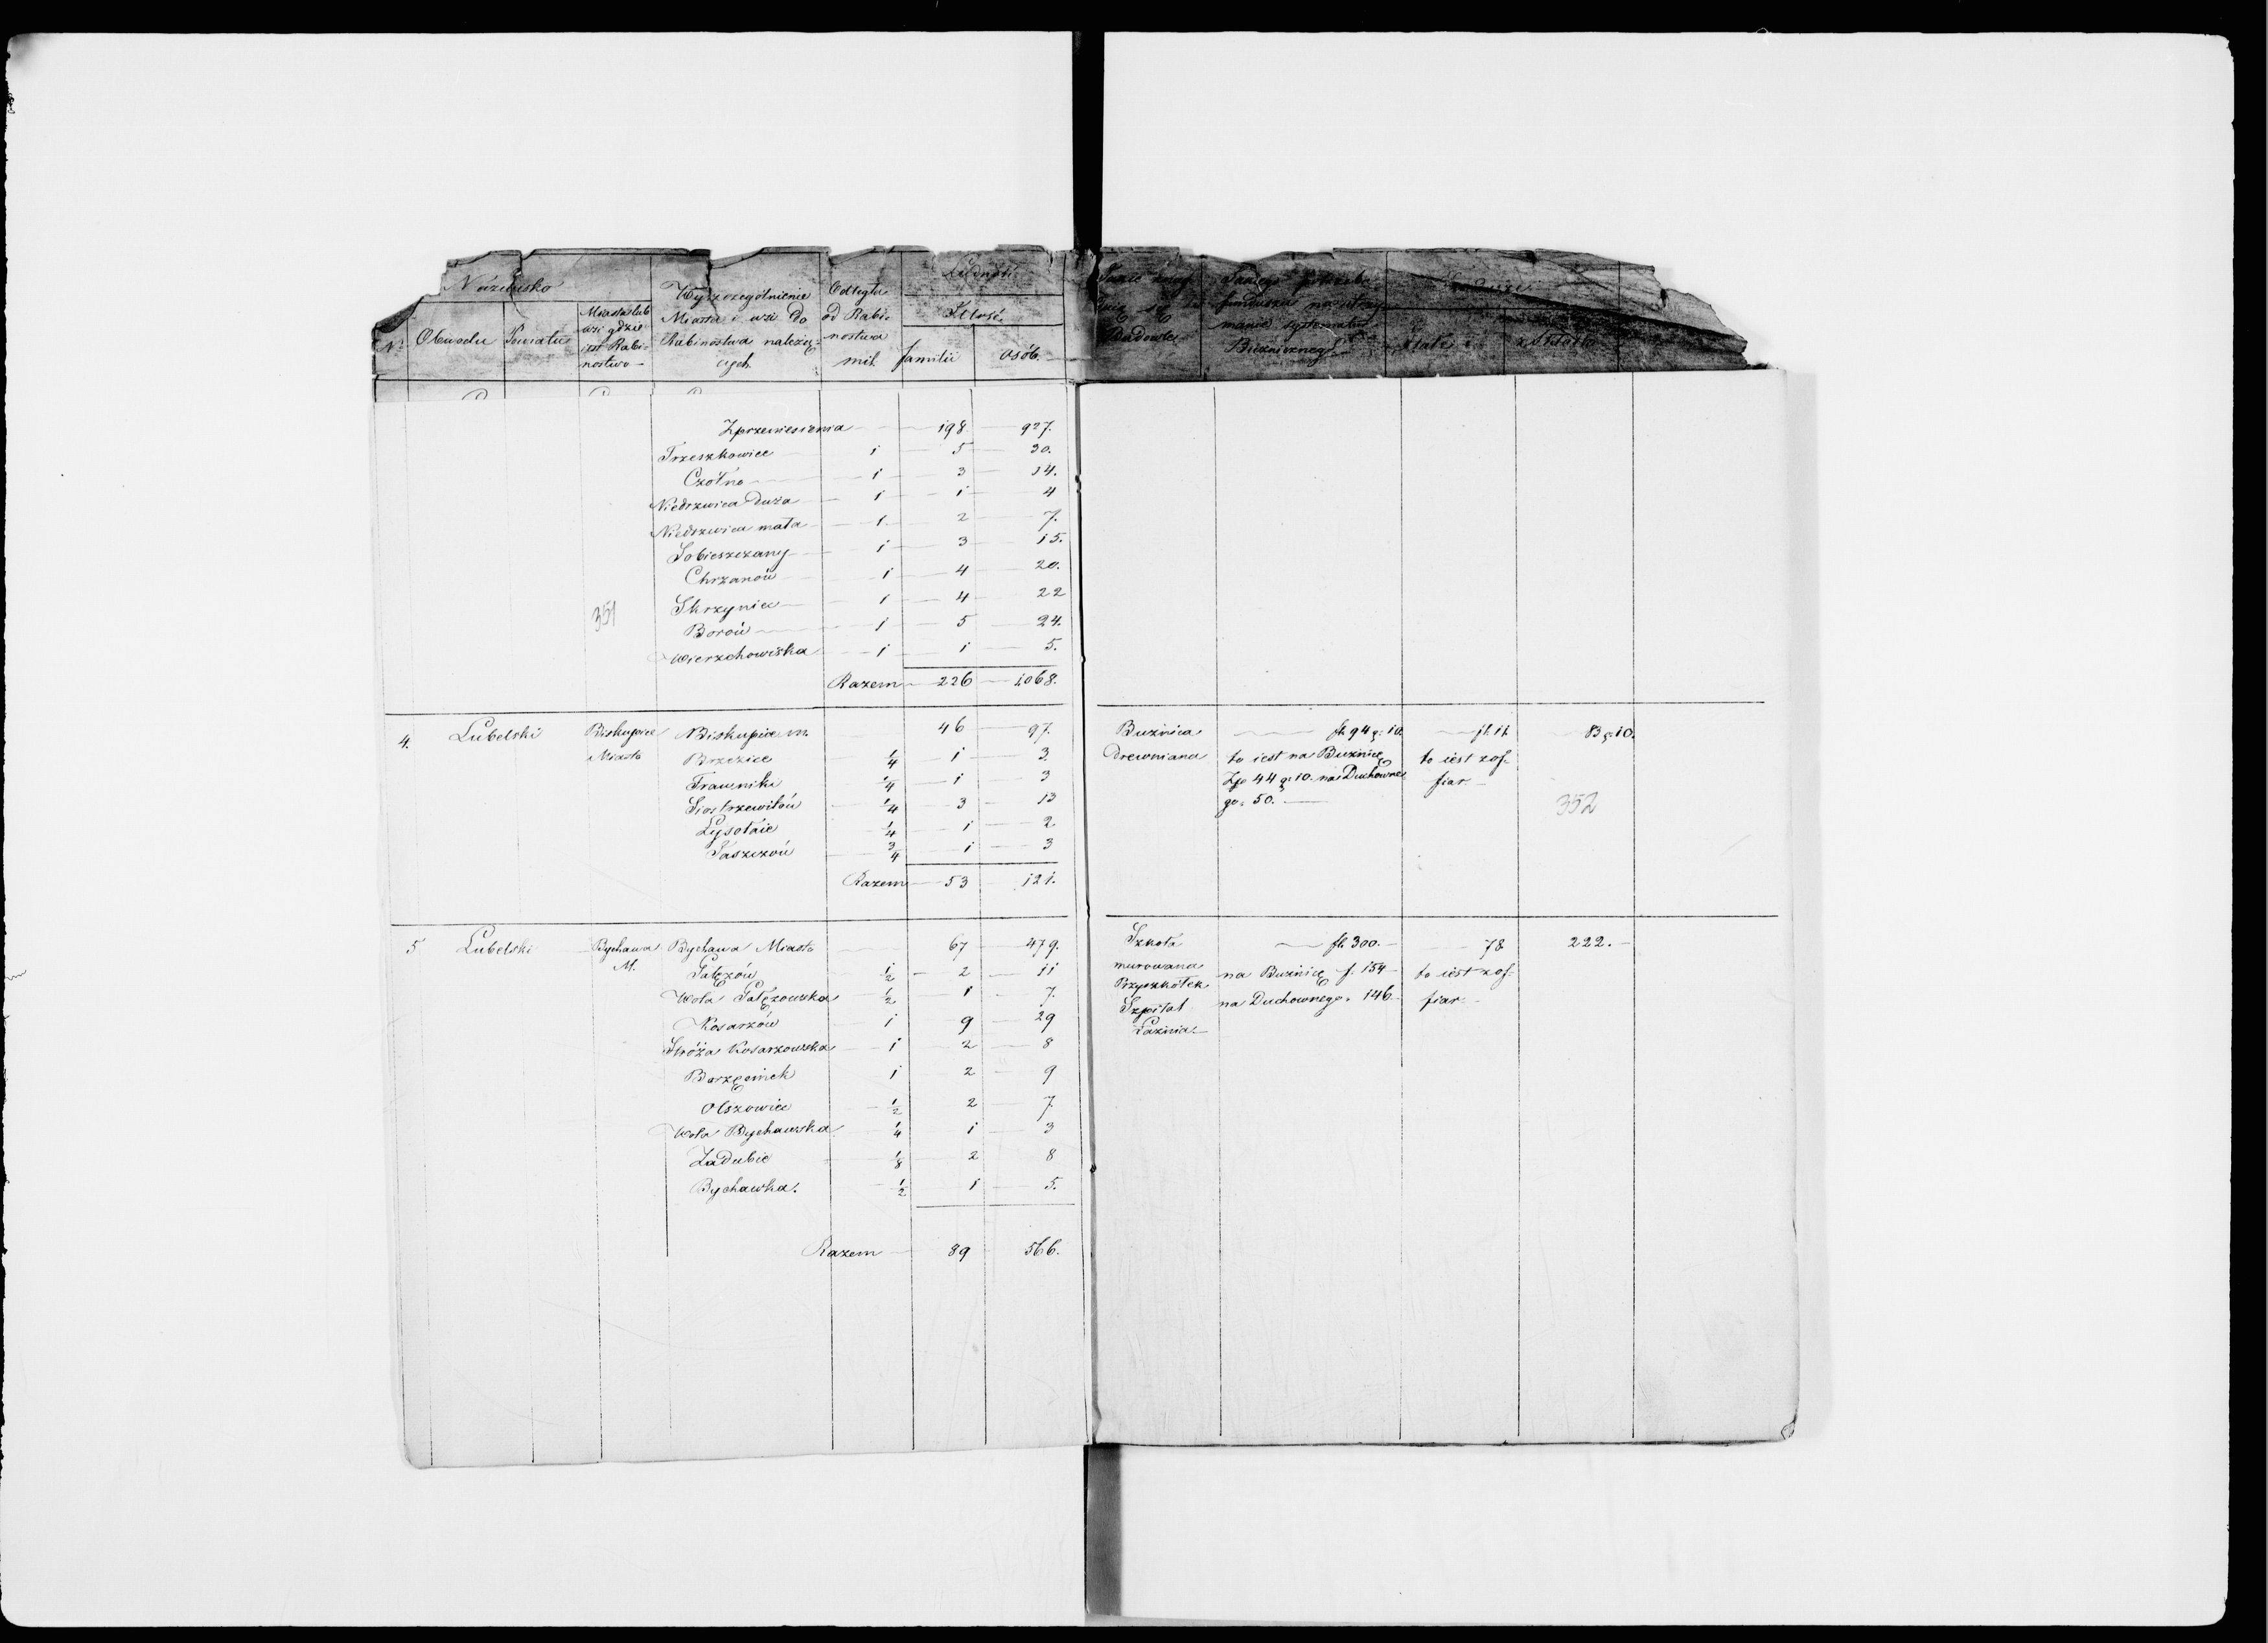 Nazwisko
Ludność
Wyszczególnienie
Miasta i wsi do
Rabinostwa należą-
cych
Odległa
od Rabi-
nostwa
mil.
Ilość
familii osób.
Nr Obwodu Powiatu
Miasta lub
wsi gdzie
iest Rabi-
nostwo
fundusza na utrzy-
Budowle
Bużnicznego
Z przeniesienia 198. 927.
Trzeszkowice 1 5 30.
Czółna 1 3 14.
Niedrzwica Duża 1 1 4
Niedrzwica mała 1. 2 7.
Sobieszczany 1 3 15.
Chrzanów 1 4 20.
Skrzynice 1 4 22
Borów 1 5 24.
Wierzchowiska 1 1 5.
351
Razem 226 1068.
4. Lubelski Biskupice Biskupice m. 46 97.
Miasto Brzezice 1/4 1 3.
Trawniki 1/4 1 3
Siostrzewitów 1/4 3 13
Łysołaie 1/4 1 2
Jaszczów 3/4 1 3
Razem 53 121.
Bużnica fl. 94 g: 10. fl. 11. 83 g: 10.
drewniana to iest na Bużnicę to iest z of-
Zp 44 g: 10. na Duchowne- fiar.
go: 50.
352
5 Lubelski Bychawa Bychawa Miasto 67 479.
M. Gałęzów 1/2 2 11
Wola Gałęzowska 1/2 1 7.
Kosarzów 1 9 29
Stróża Kosarzowska 1 2 8
Borzęcinek 1 2 9
Olszowiec 1/2 2 7.
Wola Bychawska 1/4 1 3
Zadubie 1/8 2 8
Bychawka. 1/2 1 5.
Razem 89 566.
Szkoła fl. 300. 78 222.
murowana na Bużnicę f. 154 to iest z of-
Przyszkółek na Duchownego. 146. fiar
Szpital
Łaźnia.